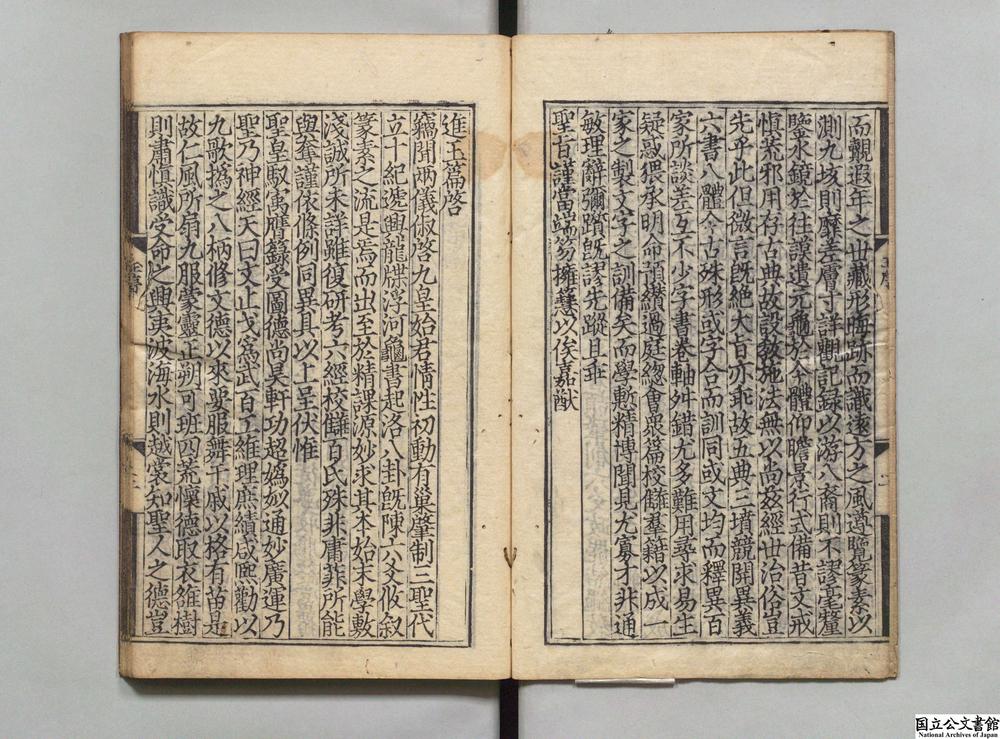 而觀遐年之世藏形晦跡而識遠方之風遵覽篆素以
測九垓則靡差膚寸詳觀記録以游八裔則不謬毫釐
鑒水鏡於往謨遺元龜於今體仰瞻景行式備昔文戒
慎荒邪用存古典故設教施法無以尚茲經世治俗豈
先乎此但微言既絶大旨亦乖故五典三墳競開異義
六書八體今古殊形或字各而訓同或文均而釋異百
家所談差互不少字書卷軸舛錯尤多難用尋求易生
疑惑猥承明命預纘過庭總會衆篇校讎羣籍以成一
家之製文字之訓備矣而學慙精博聞見尤寡才非通
敏理辭彌躓既謬先蹤且乖
聖旨謹當端笏擁篲以俟嘉猷
進玉篇啓
竊聞兩儀俶啓九皇始君情性初動有巢肇制三聖代
立十紀遞興龍牒浮河龜書起洛八卦既陳六爻攸叙
篆素之流是焉而出至於精課源妙求其本始末學敷
淺誠所未詳雖復研考六經校讎百氏殊非庸菲所能
與奪謹依條例同異具以上呈伏惟
聖皇馭寓膺籙受圖德尚昊軒功超嬀姒通妙廣運乃
聖乃神經天曰文止戈爲武百工維理庶績咸熈勸以
九歌撝之八柄修文德以來要服舞干戚以格有苗是
故仁風所扇九服蒙靈正朔可班四荒懷德取衣雒樹
則肅慎識受命之興夷波海水則越裳知聖人之德豈
玉序
二
國立公文書館
National Archives of Japan